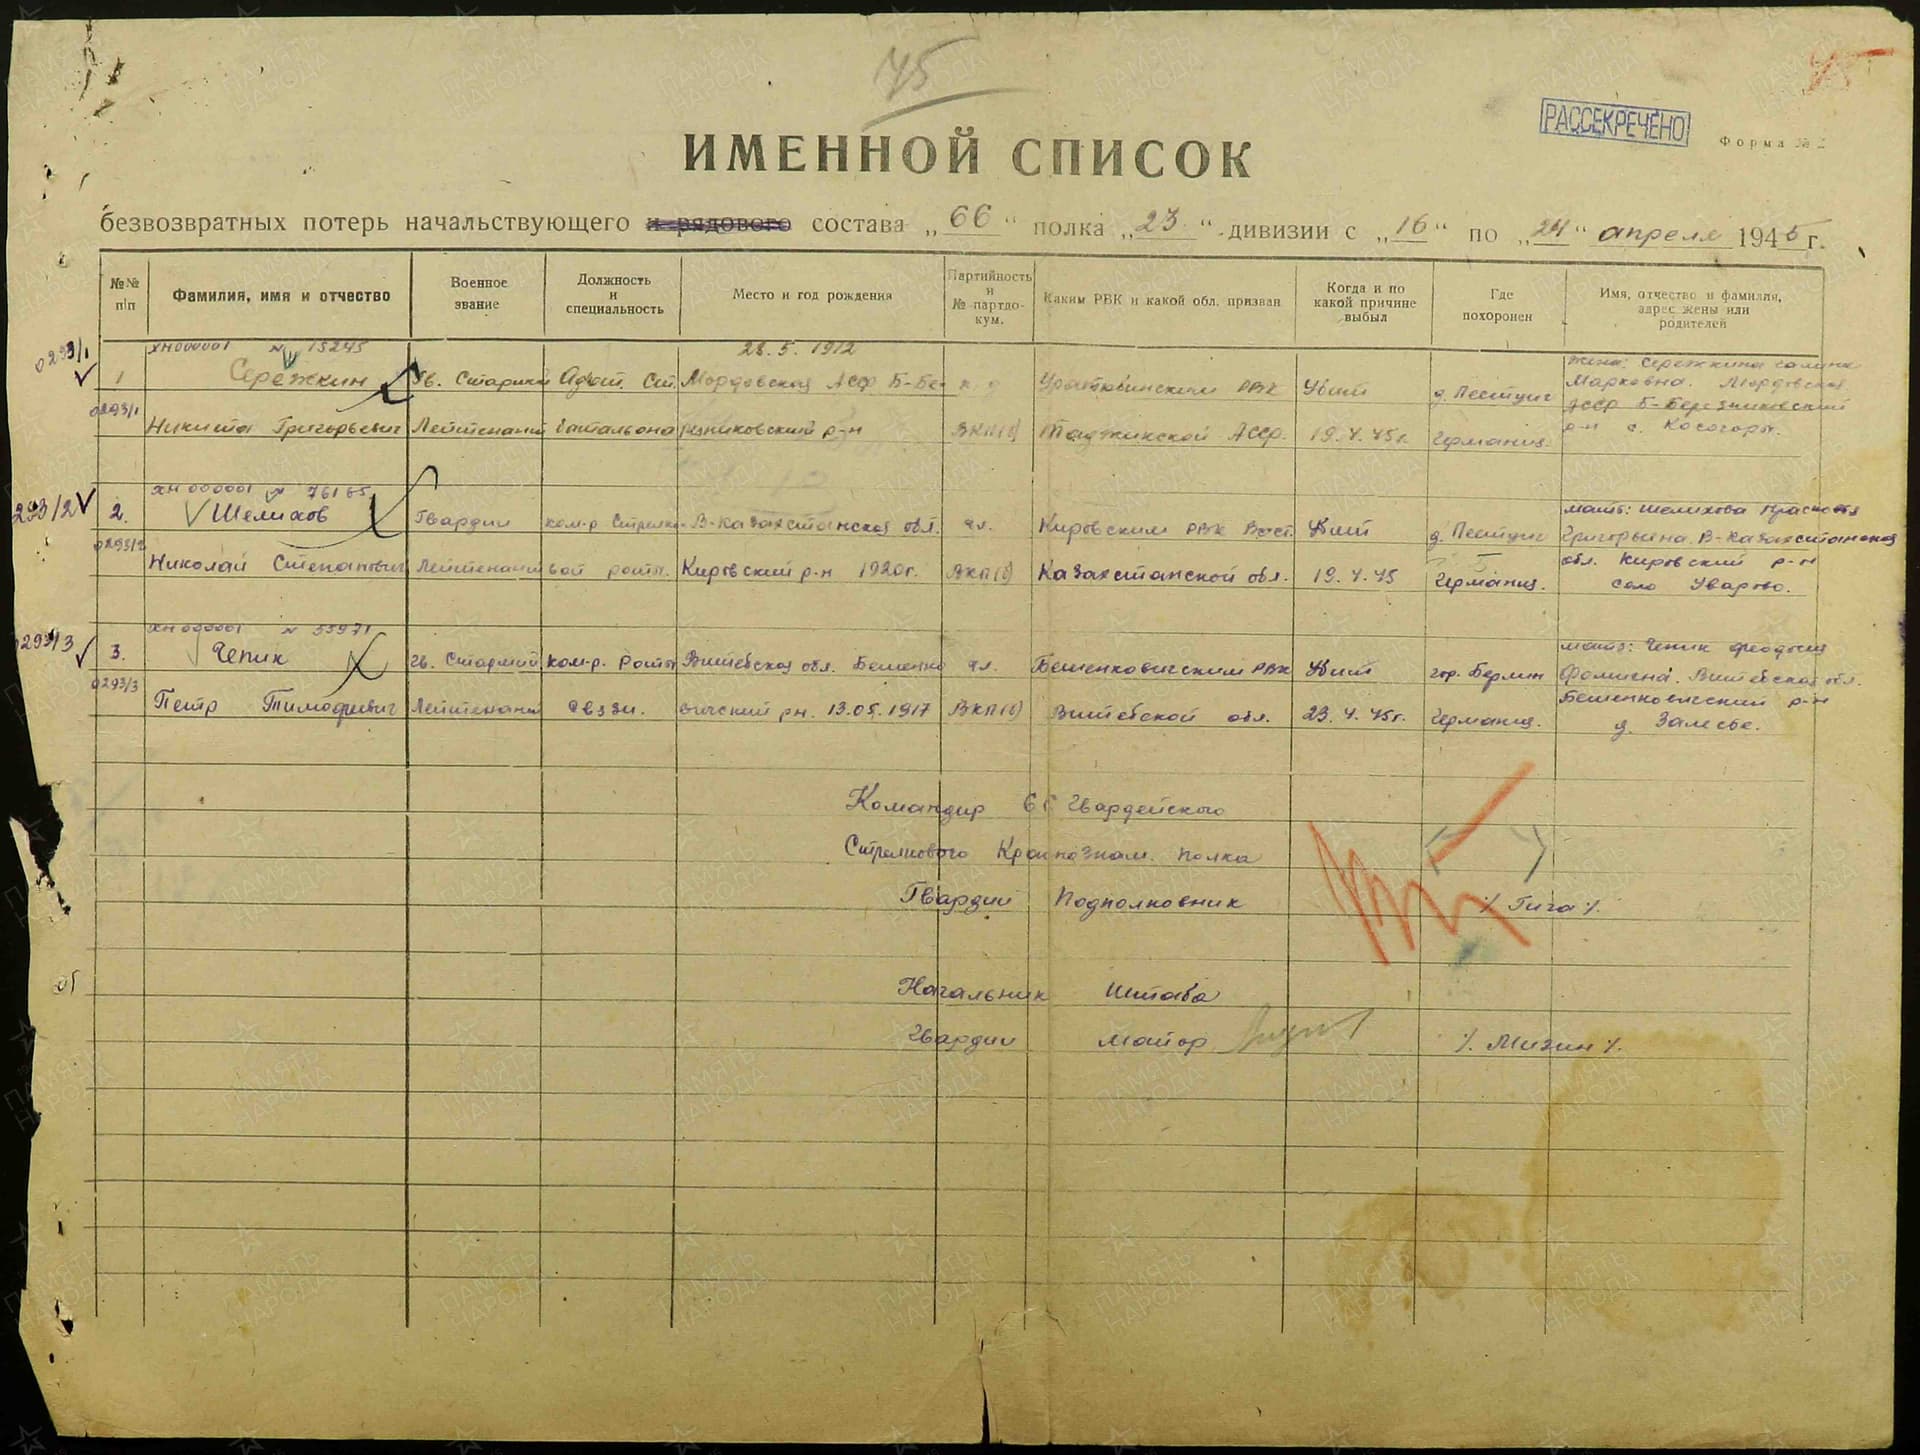 45
45
РАССЕКРЕЧЕНО
Форма № 2
ИМЕННОЙ СПИСОК
безвозвратных потерь начальствующего и рядового состава „66“ полка „23“ дивизии с „16“ по „24“ апреля 1945 г.
№№ п/п
Фамилия, имя и отчество
Военное звание
Должность и специальность
Место и год рождения
Партийность и № партдокум.
Каким РВК и какой обл. призван
Когда и по какой причине выбыл
Где похоронен
Имя, отчество и фамилия, адрес жены или родителей
0293/1
ХН000001 № 15245
28.5.1912
1 Сережкин Гв. Старший Адъют. Ст. Мордовской Асср Б-Бе РВК Убит д. Пестциг
жена: Сережкина Галина
Марковна. Мордовской
Асср Б-Березниковский
р-н с. Косогоры.
0293/1
Никита Григорьевич Лейтенант батальона резниковский р-н ВКП(б) Таджикской Асср. 19.4.45г. Германия.
293/2
ХН000001 № 76165
2. Шелихов Гвардии ком-р Стрелко- В-Казахстанской обл. чл. Кировским РВК Вост. Убит д. Пестциг
мать: Шелихова
Григорьевна. В-Казахстанской
обл. Кировский р-н
село Уварово.
0293/2
Николай Степанович Лейтенант вой роты. Кировский р-н 1920г. ВКП(б) Казахстанской обл. 19.4.45 Германия.
0293/3
ХН000001 № 55971
3. Чепик Гв. Старший ком-р. Роты Витебской обл. Бешенко чл. Бешенковичским РВК Убит гор. Берлин
мать: Чепик Феодосия
Фомична. Витебской обл.
Бешенковичский р-н
д. Залесье.
0293/3
Петр Тимофеевич Лейтенант связи. вичский рн. 13.05.1917 ВКП(б) Витебской обл. 23.4.45г. Германия.
Командир 66 Гвардейского
Стрелкового Краснознам. полка
Гвардии Подполковник /. Гига /.
Начальник Штаба
Гвардии Майор /. Мизин /.
ПАМЯТЬ НАРОДА